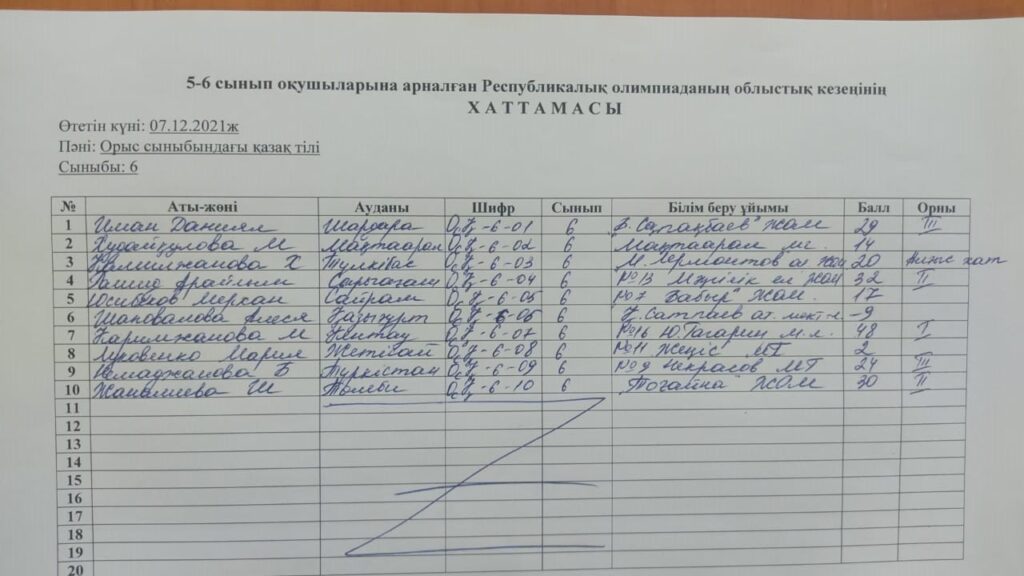 5-6 сынып оқушыларына арналған Республикалық олимпиаданың облыстық кезеңінің
ХАТТАМАСЫ
Өтетін күні: 07.12.2021ж
Пәні: Орыс сыныбындағы қазақ тілі
Сыныбы: 6
№ Аты-жөні Ауданы Шифр Сынып Білім беру ұйымы Балл Орны
1 Иман Даниял Шардара ОҚ-6-01 6 ЖОМ 29 III
2 Худайқулова М Мақтаарал ОҚ-6-02 6 Мақтаарал 14
3 Камилжанова Х Түлкібас ОҚ-6-03 6 М. Лермонтов ат ЖОМ 20 Алғыс хат
4 Арайлым Сарыағаш ОҚ-6-04 6 №13 Мәңгілік ел ЖОМ 32 II
5 Юсибеков Мерхан Сайрам ОҚ-6-05 6 №7 Бабыр ЖОМ 17
6 Шаповалова Алеся Қазығұрт ОҚ-6-06 6 Қ.Сатпаев ат. мект-л. -9
7 Каримжанова М Кентау ОҚ-6-07 6 №16 Ю.Гагарин м.л. 48 I
8 Мария Жетісай ОҚ-6-08 6 №11 Жеңіс МГ 2
9 Б Түркістан ОҚ-6-09 6 №9 Некрасов МГ 24 III
10 Ш Төлеби ОҚ-6-10 6 ЖОМ 30 II
11
12
13
14
15
16
17
18
19
20